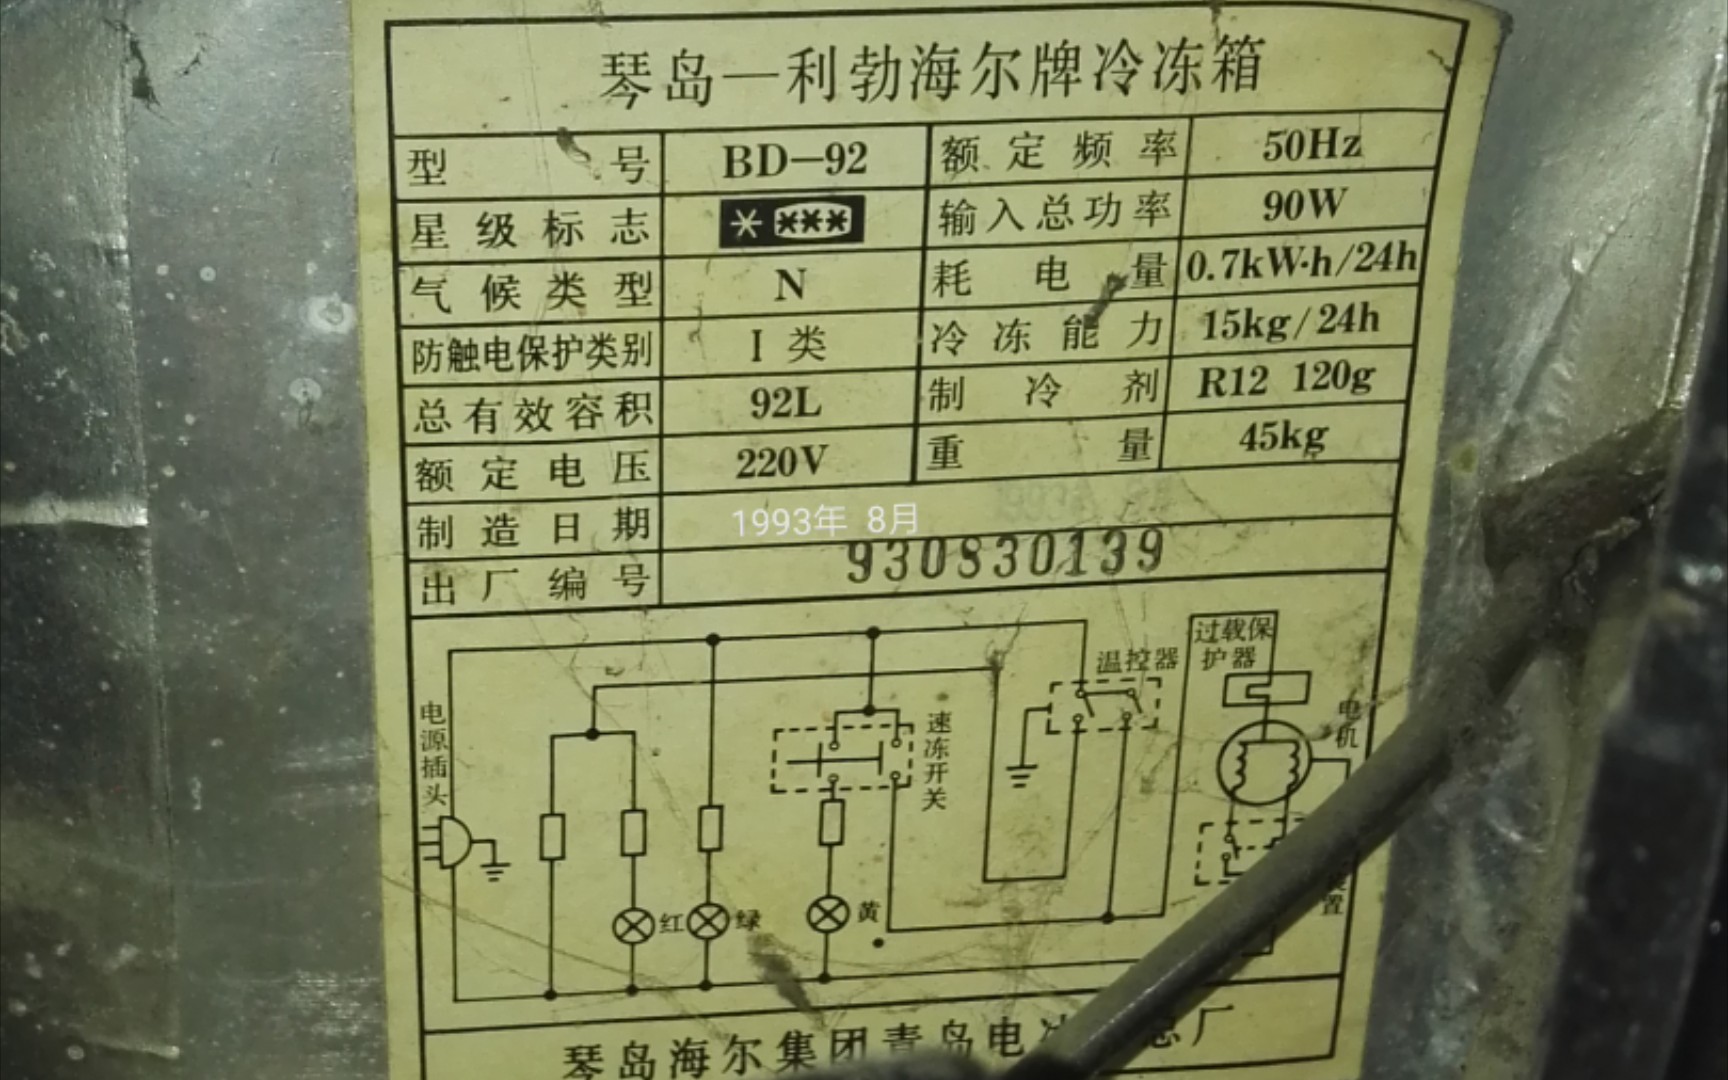 琴岛—利勃海尔牌冷冻箱
型号 BD—92 额定频率 50Hz
星级标志 * *** 输入总功率 90W
气候类型 N 耗电量 0.7kW·h/24h
防触电保护类别 I类 冷冻能力 15kg/24h
总有效容积 92L 制冷剂 R12 120g
额定电压 220V 重量 45kg
制造日期 1993年 8月
出厂编号 930830139
电源插头
速冻开关
温控器
过载保护器
电机
红
绿
黄
置
琴岛海尔集团青岛电 总厂